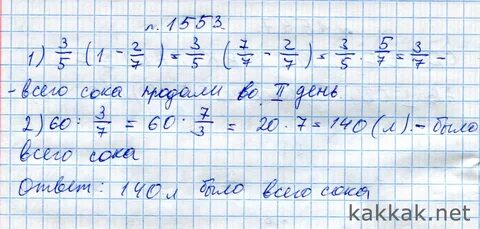 н. 1553.
1) 3/5 (1 - 2/7) = 3/5 (7/7 - 2/7) = 3/5 · 5/7 = 3/7 -
- всего сока продали во II день
2) 60 : 3/7 = 60 · 7/3 = 20 · 7 = 140 (л) - было
всего сока
Ответ: 140 л было всего сока
kakkak.net